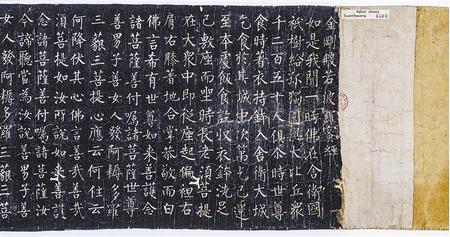 Pelliot chinois
Touen-houang 4503
金剛般若波羅蜜經
如是我聞一時佛在舍衛國
祇樹給孤獨園與大比丘衆
千二百五十人俱尒時世尊
食時著衣持鉢入舍衛大城
乞食於其城中次第乞已還
至本處飯食訖收衣鉢洗足
已敷座而坐時長老須菩提
在大衆中即從座起偏袒右
肩右膝著地合掌恭敬而白
佛言希有世尊如來善護念
諸菩薩善付囑諸菩薩世尊
善男子善女人發阿耨多羅
三藐三菩提心應云何住云
何降伏其心佛言善哉善哉
須菩提如汝所說如來善護
念諸菩薩善付囑諸菩薩汝
今諦聽當為汝說善男子善
女人發阿耨多羅三藐三菩